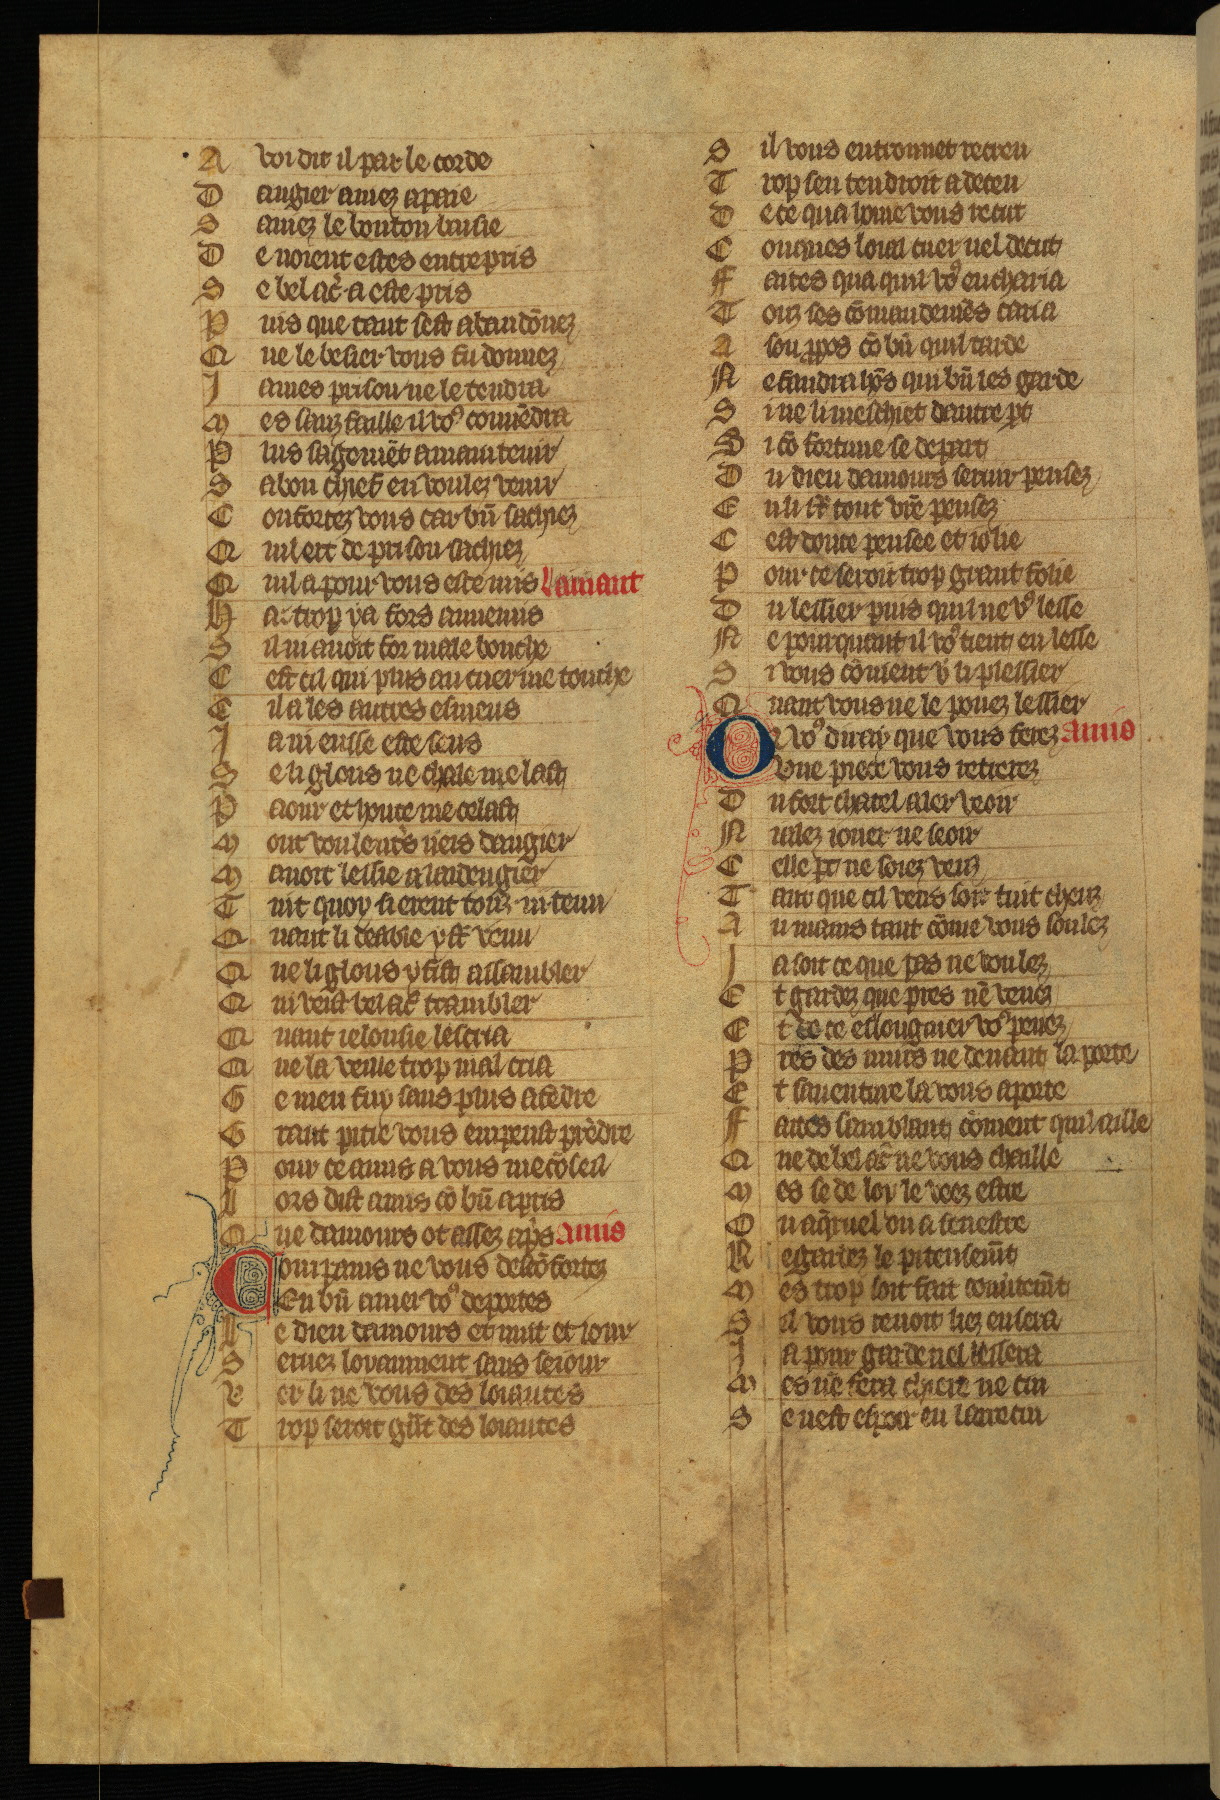 A voi dit il par le corde
D augier auiez apaie
S auiez le bouton baisie
D e noient estes entrepris
S e bel ac̄ a este pris
P uis que tant sest abandōnez
Q ue le besier vous fu donnez
J ames prison ne le tendra
M es sanz faille il vo⁹ conuēdra
P lus sagemēt a maintenir
S a bon chief en voulez venir
C onfortez vous car bn̄ sachiez
Q uil ert de prison sachiez
Q uil a pour vous este mis Lamant
H a trop y a fors annemis
S il mauoit for male bouche
C est cil qui plus au cuer me touche
C il a les autres esmeus
J a ni eusse este seus
S e li glous ne chalemelast
P aour et honte me celast
M out voulentˢ neis dangier
M auoit lessie a laidengier
T uit quoy si erent touz iii tenu
Q uant li deable y st̄ venu
Q ue li glous y fist assambler
Q ui veist bel ac̄ trambler
Q uant ielousie lescria
Q ue la veille trop mal cria
G e men fuy sans plus atēdre
G rant pitie vous em peust prēdre
P our ce amis a vous me cōseil
L ors dist amis cō bn̄ apris
Q ue damours ot assez ap̄s Amis
Compains ne vous descōfortez
En bn̄ amer vo⁹ deportes
L e dieu damours et nuit et iour
S eruez loyaument sans seiour
V er li ne vous des loiautes
T rop seroit gr̄t des loiautes
S il vous en trouuet recreu
T rop sen tendroit a deceu
D e ce qua home vous recut
C onques loial cuer nel decut
F aites quaquil vo⁹ encharia
T ouz ses cōmandemēs caria
A son ꝓpos cō bn̄ quil tarde
N e faudra hōs qui bn̄ les garde
S i ne li meschiet dautre pt
S i cō fortune se depart
D u dieu damours seruir pensez
E n li st̄ tout vr̄e pensez
C est douce pensee et iolie
P our ce seroit trop grant folie
D u lessier puis quil ne v⁹ lesse
N e pourquant il vo⁹ tient en lesse
S i vous cōuient v̄s li plessier
Q uant vous ne le pouez lessier
Or vo⁹ diray que vous ferez Amis
Vne piece vous retierez
D u fort chatel aler veoir
N alez iouer ne seoir
C elle pt ne soiez veuz
T ant que cil vens soit tuit cheuz
A u mains tant cōme vous soulez
J a soit ce que pas ne voulez
E t gardez que pres nē venez
E t de ce esloingnier vo⁹ penez
P res des murs ne deuant la porte
E t sauenture la vous aporte
F aites samblant cōment quil aille
Q ue de bel ac̄ ne vous chaille
M es se de loy le veez estre
O u a q̄rnel ou a fenestre
R egardez le piteusemt̄
M es trop soit fait couuertemt̄
S il vous reuoit liez en sera
J a pour garde nel lessera
M es nē fera chiere ne cin
S e nest espoir en larrecin